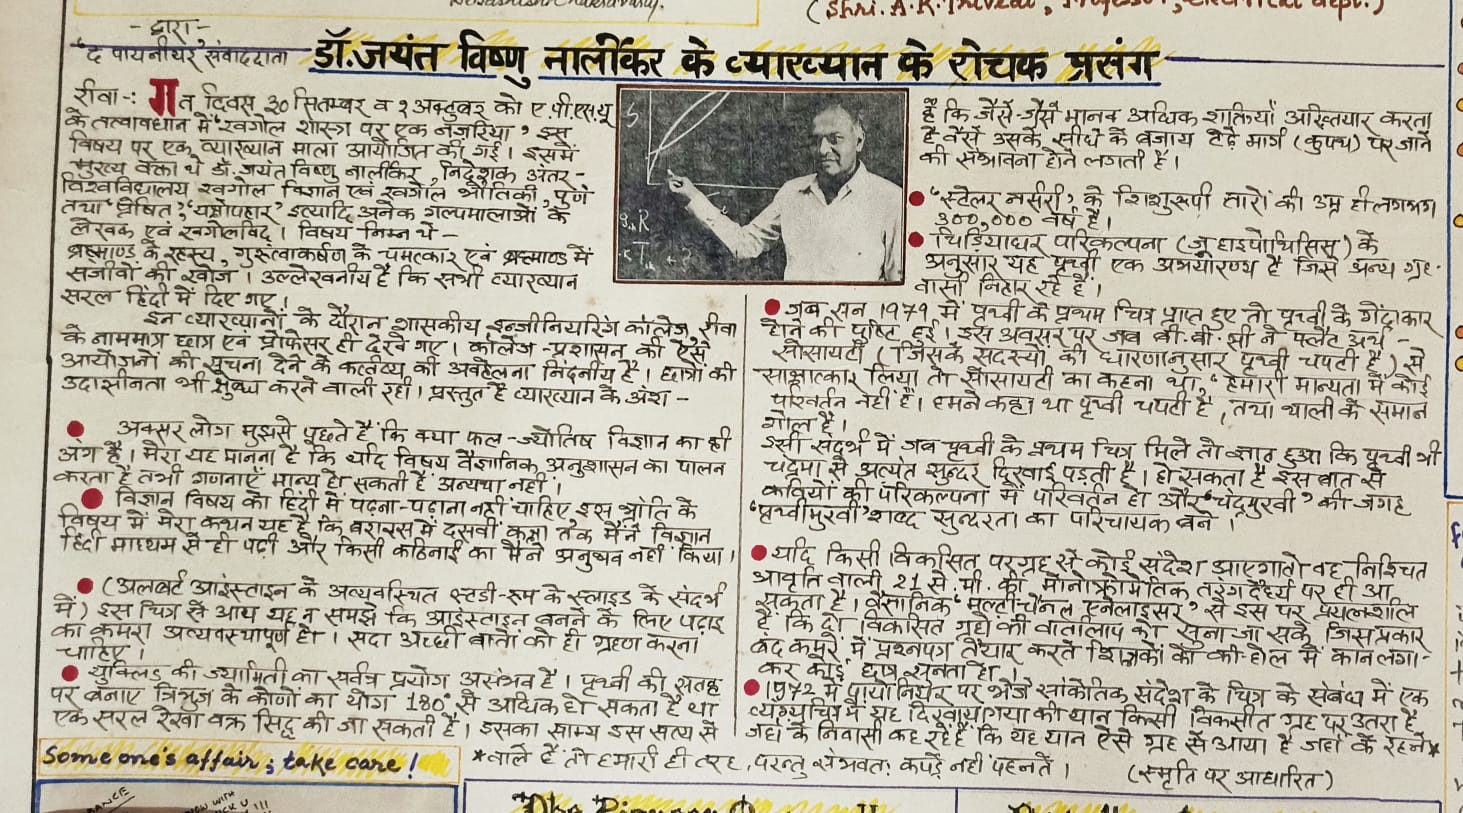 (Shri. A.K. Trivedi, Professor, Electrical dept.)
- द्वारा -
'द पायनीयर' संवाददाता
डॉ. जयंत विष्णु नार्लीकर के व्याख्यान के रोचक प्रसंग
रीवा-: गत दिवस 30 सितम्बर व 1 अक्टूबर को ए.पी.एस.यू
के तत्वावधान में 'खगोल शास्त्र पर एक नजरिया' इस
विषय पर एक व्याख्यान माला आयोजित की गई। इसमें
मुख्य वक्ता थे डॉ. जयंत विष्णु नार्लीकर, निदेशक अंतर-
विश्वविद्यालय खगोल विज्ञान एवं खगोल भौतिकी, पुणे
तथा 'प्रेषित', 'यक्षोपहार' इत्यादि अनेक गल्पमालाओं के
लेखक एवं खगोलविद्। विषय निम्न थे -
ब्रह्माण्ड के रहस्य, गुरुत्वाकर्षण के चमत्कार एवं ब्रह्माण्ड में
सजीवों की खोज। उल्लेखनीय है कि सभी व्याख्यान
सरल हिंदी में दिए गए।
इन व्याख्यानों के दौरान शासकीय इन्जीनियरिंग कॉलेज, रीवा
के नाममात्र छात्र एवं प्रोफेसर ही देखे गए। कॉलेज-प्रशासन की ऐसे
आयोजनों की सूचना देने के कर्तव्य की अवहेलना निंदनीय है। छात्रों की
उदासीनता भी क्षुब्ध करने वाली रही। प्रस्तुत है व्याख्यान के अंश -
● अक्सर लोग मुझसे पूछते हैं कि क्या फल-ज्योतिष विज्ञान का ही
अंग है। मेरा यह मानना है कि यदि विषय वैज्ञानिक अनुशासन का पालन
करता है तभी गणनाएँ मान्य हो सकती हैं अन्यथा नहीं।
● विज्ञान विषय को हिंदी में पढ़ना-पढ़ाना नहीं चाहिए इस भ्रांति के
विषय में मेरा कथन यह है कि बनारस में दसवीं कक्षा तक मैंने विज्ञान
हिंदी माध्यम से ही पढ़ी और किसी कठिनाई का मैंने अनुभव नहीं किया।
● (अलबर्ट आइंस्टाइन के अव्यवस्थित स्टडी-रूम के स्लाइड के संदर्भ
में) इस चित्र से आप यह न समझे कि आइंस्टाइन बनने के लिए पढ़ाई
का कमरा अव्यवस्थापूर्ण हो। सदा अच्छी बातों को ही ग्रहण करना
चाहिए।
● युक्लिड की ज्यामिती का सर्वत्र प्रयोग असंभव है। पृथ्वी की सतह
पर बनाए त्रिभुज के कोणों का योग 180° से अधिक हो सकता है या
एक सरल रेखा वक्र सिद्ध की जा सकती है। इसका साम्य इस सत्य से
है कि जैसे-जैसे मानव अधिक शक्तियाँ अख्तियार करता
है वैसे उसके सीधे के बजाय टेढ़े मार्ग (कुपथ) पर जाने
की संभावना होने लगती है।
● 'स्टेलर नर्सरी' के शिशुरूपी तारों की उम्र ही लगभग
300,000 वर्ष है।
● चिड़ियाघर परिकल्पना (जू हाइपोथिसिस) के
अनुसार यह पृथ्वी एक अभयारण्य है जिसे अन्य ग्रह-
वासी निहार रहे हैं।
● जब सन् 1979 में पृथ्वी के प्रथम चित्र प्राप्त हुए तो पृथ्वी के गेंदाकार
होने की पुष्टि हुई। इस अवसर पर जब बी.बी.सी ने फ्लैट अर्थ-
सोसायटी (जिसके सदस्यों की धारणानुसार पृथ्वी चपटी है) से
साक्षात्कार लिया तो सोसायटी का कहना था, "हमारी मान्यता में कोई
परिवर्तन नहीं है। हमने कहा था पृथ्वी चपटी है, तथा थाली के समान
गोल है।
इसी संदर्भ में जब पृथ्वी के प्रथम चित्र मिले तो ज्ञात हुआ कि पृथ्वी भी
चंद्रमा से अत्यंत सुन्दर दिखाई पड़ती है। हो सकता है इस बात से
कवियों की परिकल्पना में परिवर्तन हो और 'चंद्रमुखी' की जगह
'पृथ्वीमुखी' शब्द सुन्दरता का परिचायक बने।
● यदि किसी विकसित परग्रह से कोई संदेश आएगा तो वह निश्चित
आवृति वाली 21 से.मी. की मोनोक्रोमेतिक तरंगदैर्ध्य पर ही आ
सकता है। वैज्ञानिक 'मल्टी-चैनल एनेलाइसर' से इस पर प्रयत्नशील
हैं कि दो विकसित ग्रहों की वार्तालाप को सुना जा सके जिस प्रकार
बंद कमरे में प्रश्नपत्र तैयार करते शिक्षकों को की-होल में कान लगा-
कर कोई छात्र सुनता हो।
● 1972 में पायोनियर पर भेजे सांकेतिक संदेश के चित्र के संबंध में एक
व्यंग्यचित्र में यह दिखाया गया की यान किसी विकसीत ग्रह पर उतरा है
जहाँ के निवासी कह रहे हैं कि यह यान ऐसे ग्रह से आया है जहाँ के रहने*
*वाले हैं तो हमारी ही तरह, परन्तु संभवतः कपड़े नहीं पहनते।
(स्मृति पर आधारित)
Someone's affair; take care!